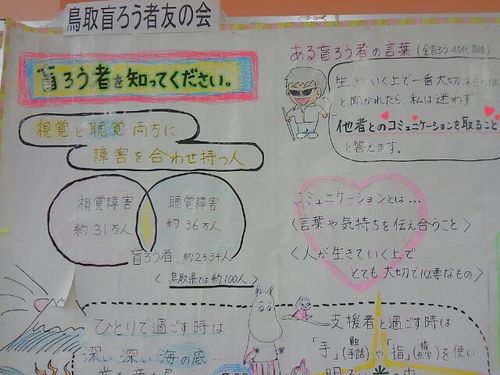 鳥取盲ろう者友の会
盲ろう者を知ってください。
視覚と聴覚両方に
障害を合わせ持つ人
視覚障害
約31万人
聴覚障害
約36万人
盲ろう者 約2534人
〈鳥取県では約100人〉
ある盲ろう者の言葉
生きていく上で一番大切なものは
と聞かれたら 私は迷わず
他者とのコミュニケーションを取ること
と答えます。
コミュニケーションとは…
〈言葉や気持ちを伝え合うこと〉
〈人が生きていく上で
とても大切で必要なもの〉
ひとりで過ごす時は
深い深い海の底…
支援者と過ごす時は
「手」(手話)や「指」を使い